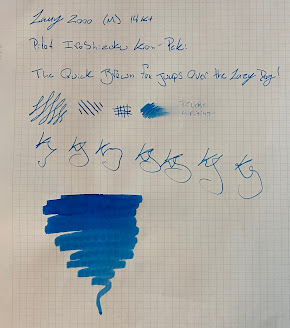 Lamy 2000 (M) 14kt
Pilot Iroshizuku Kon-Peki
The Quick Brown Fox Jumps Over the Lazy Dog!